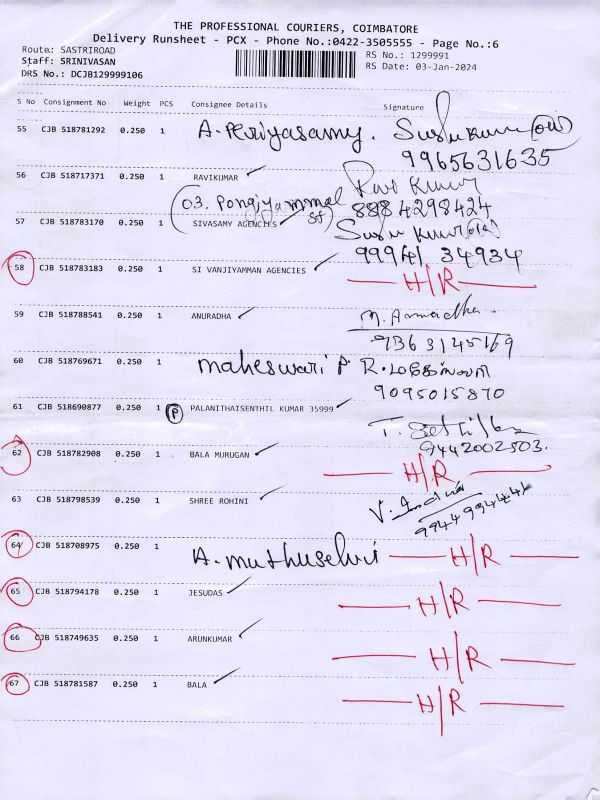 THE PROFESSIONAL COURIERS, COIMBATORE
Delivery Runsheet - PCX - Phone No.:0422-3505555 - Page No.:6
Route: SASTRIROAD
RS No.: 1299991
Staff: SRINIVASAN
RS Date: 03-Jan-2024
DRS No.: DCJB129999106
S No Consignment No Weight PCS Consignee Details Signature
55 CJB 518781292 0.250 1 A. Periyasamy.
9965631635
56 CJB 518717371 0.250 1 RAVIKUMAR Ravi Kumar
(03. Pongiyammal St) 8884298424
57 CJB 518783170 0.250 1 SIVASAMY AGENCIES
99941 34934
58 CJB 518783183 0.250 1 SI VANJIYAMMAN AGENCIES H/R
59 CJB 518788541 0.250 1 ANURADHA M. Anuradha
9363145169
60 CJB 518769671 0.250 1 maheswari P R. மகேஸ்வரி
9095015870
61 CJB 518690877 0.250 1 P PALANITHAISENTHIL KUMAR 35999
9442002503.
62 CJB 518782908 0.250 1 BALA MURUGAN H/R
63 CJB 518798539 0.250 1 SHREE ROHINI V. Indira
64 CJB 518708975 0.250 1 A. muthuselvi H/R
65 CJB 518794178 0.250 1 JESUDAS H/R
66 CJB 518749635 0.250 1 ARUNKUMAR H/R
67 CJB 518781587 0.250 1 BALA H/R